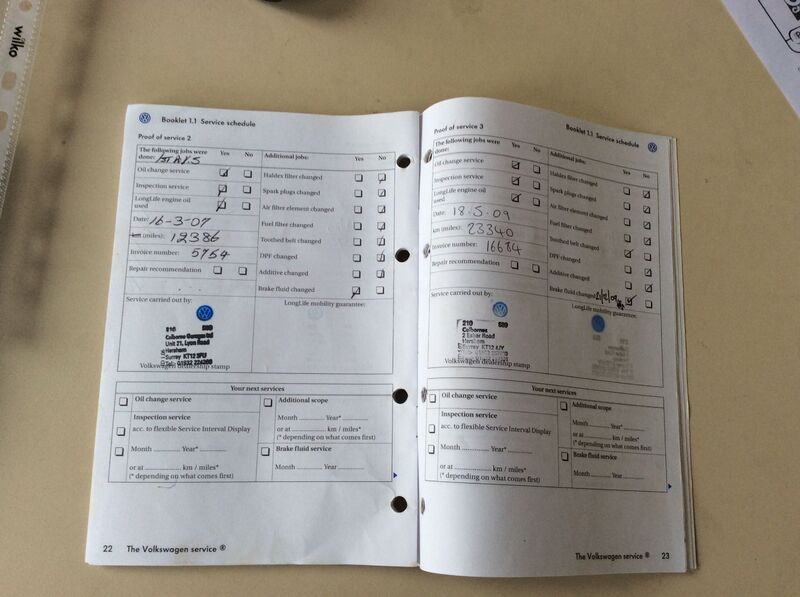 wilko
Booklet 1.1 Service schedule
Proof of service 2
The following jobs were done: Yes No
Additional jobs: Yes No
Oil change service
Inspection service
LongLife engine oil used
Date: 16-3-07
km (miles): 12386
Invoice number: 5764
Repair recommendation
Haldex filter changed
Spark plugs changed
Air filter element changed
Fuel filter changed
Toothed belt changed
DPF changed
Additive changed
Brake fluid changed
Service carried out by:
LongLife mobility guarantee:
210
Colborne Garages Ltd
Unit 21, Lyon Road
Hersham
Surrey KT12 3PU
Tel: 01932
Volkswagen dealership stamp
Your next services
Oil change service
Inspection service
acc. to flexible Service Interval Display
Month ............ Year* ............
or at .................. km / miles*
(* depending on what comes first)
Additional scope
Month ............ Year* ............
or at .................. km / miles*
(* depending on what comes first)
Brake fluid service
Month ............ Year ............
22 The Volkswagen service ®
Booklet 1.1 Service schedule
Proof of service 3
The following jobs were done: Yes No
Additional jobs: Yes No
Oil change service
Inspection service
LongLife engine oil used
Date: 18.5.09
km (miles): 23340
Invoice number: 16684
Repair recommendation
Haldex filter changed
Spark plugs changed
Air filter element changed
Fuel filter changed
Toothed belt changed
DPF changed
Additive changed
Brake fluid changed
Service carried out by:
LongLife mobility guarantee:
210
Colbornes
2 Esher Road
Hersham
Surrey KT12 4JY
Volkswagen dealership stamp
Your next services
Oil change service
Inspection service
acc. to flexible Service Interval Display
Month ............ Year* ............
or at .................. km / miles*
(* depending on what comes first)
Additional scope
Month ............ Year* ............
or at .................. km / miles*
(* depending on what comes first)
Brake fluid service
Month ............ Year ............
The Volkswagen service ® 23